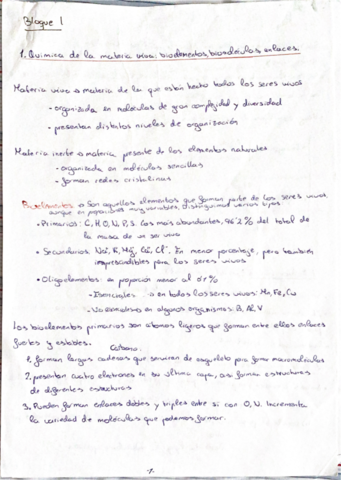 Bloque 1
1. Química de la materia viva: bioelementos, biomoléculas, enlaces.
Materia viva o materia de la que están hecho todos los seres vivos
- organizada en moléculas de gran complejidad y diversidad
- presentan distintos niveles de organización
Materia inerte o materia presente de los elementos naturales
- organizada en moléculas sencillas
- forman redes cristalinas
Bioelementos o Son aquellos elementos que forman parte de los seres vivos,
aunque en proporciones muy variables, distinguimos varios tipos
• Primarios: C, H, O, N, P, S. Los más abundantes, 96'2% del total de
la masa de un ser vivo
• Secundarios: Na, K, Mg, Ca, Cl. En menor porcentaje, pero también
imprescindibles para los seres vivos
• Oligoelementos: en proporción menor al 0'1%
- Esenciales: o en todos los seres vivos: Mn, Fe, Cu
- No esenciales en algunos organismos: B, Al, V
Los bioelementos primarios son átomos ligeros que forman entre ellos enlaces
fuertes y estables.
Carbono:
1. forman largas cadenas que servirán de esqueleto para formar macromoléculas
2. presentan cuatro electrones en su última capa, así forma estructuras
de diferentes estructuras
3. Pueden formar enlaces dobles y triples entre sí con O, N. Incrementa
la variedad de moléculas que podemos formar.
-1-